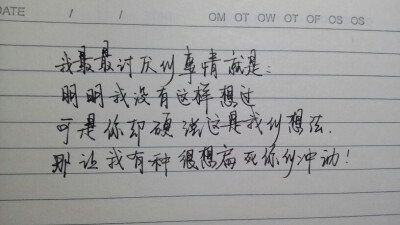 DATE / / OM OT OW OT OF OS OS
我最最讨厌的事情就是：
明明我没有这样想过
可是你却硬说这是我的想法.
那让我有种很想扁死你的冲动！